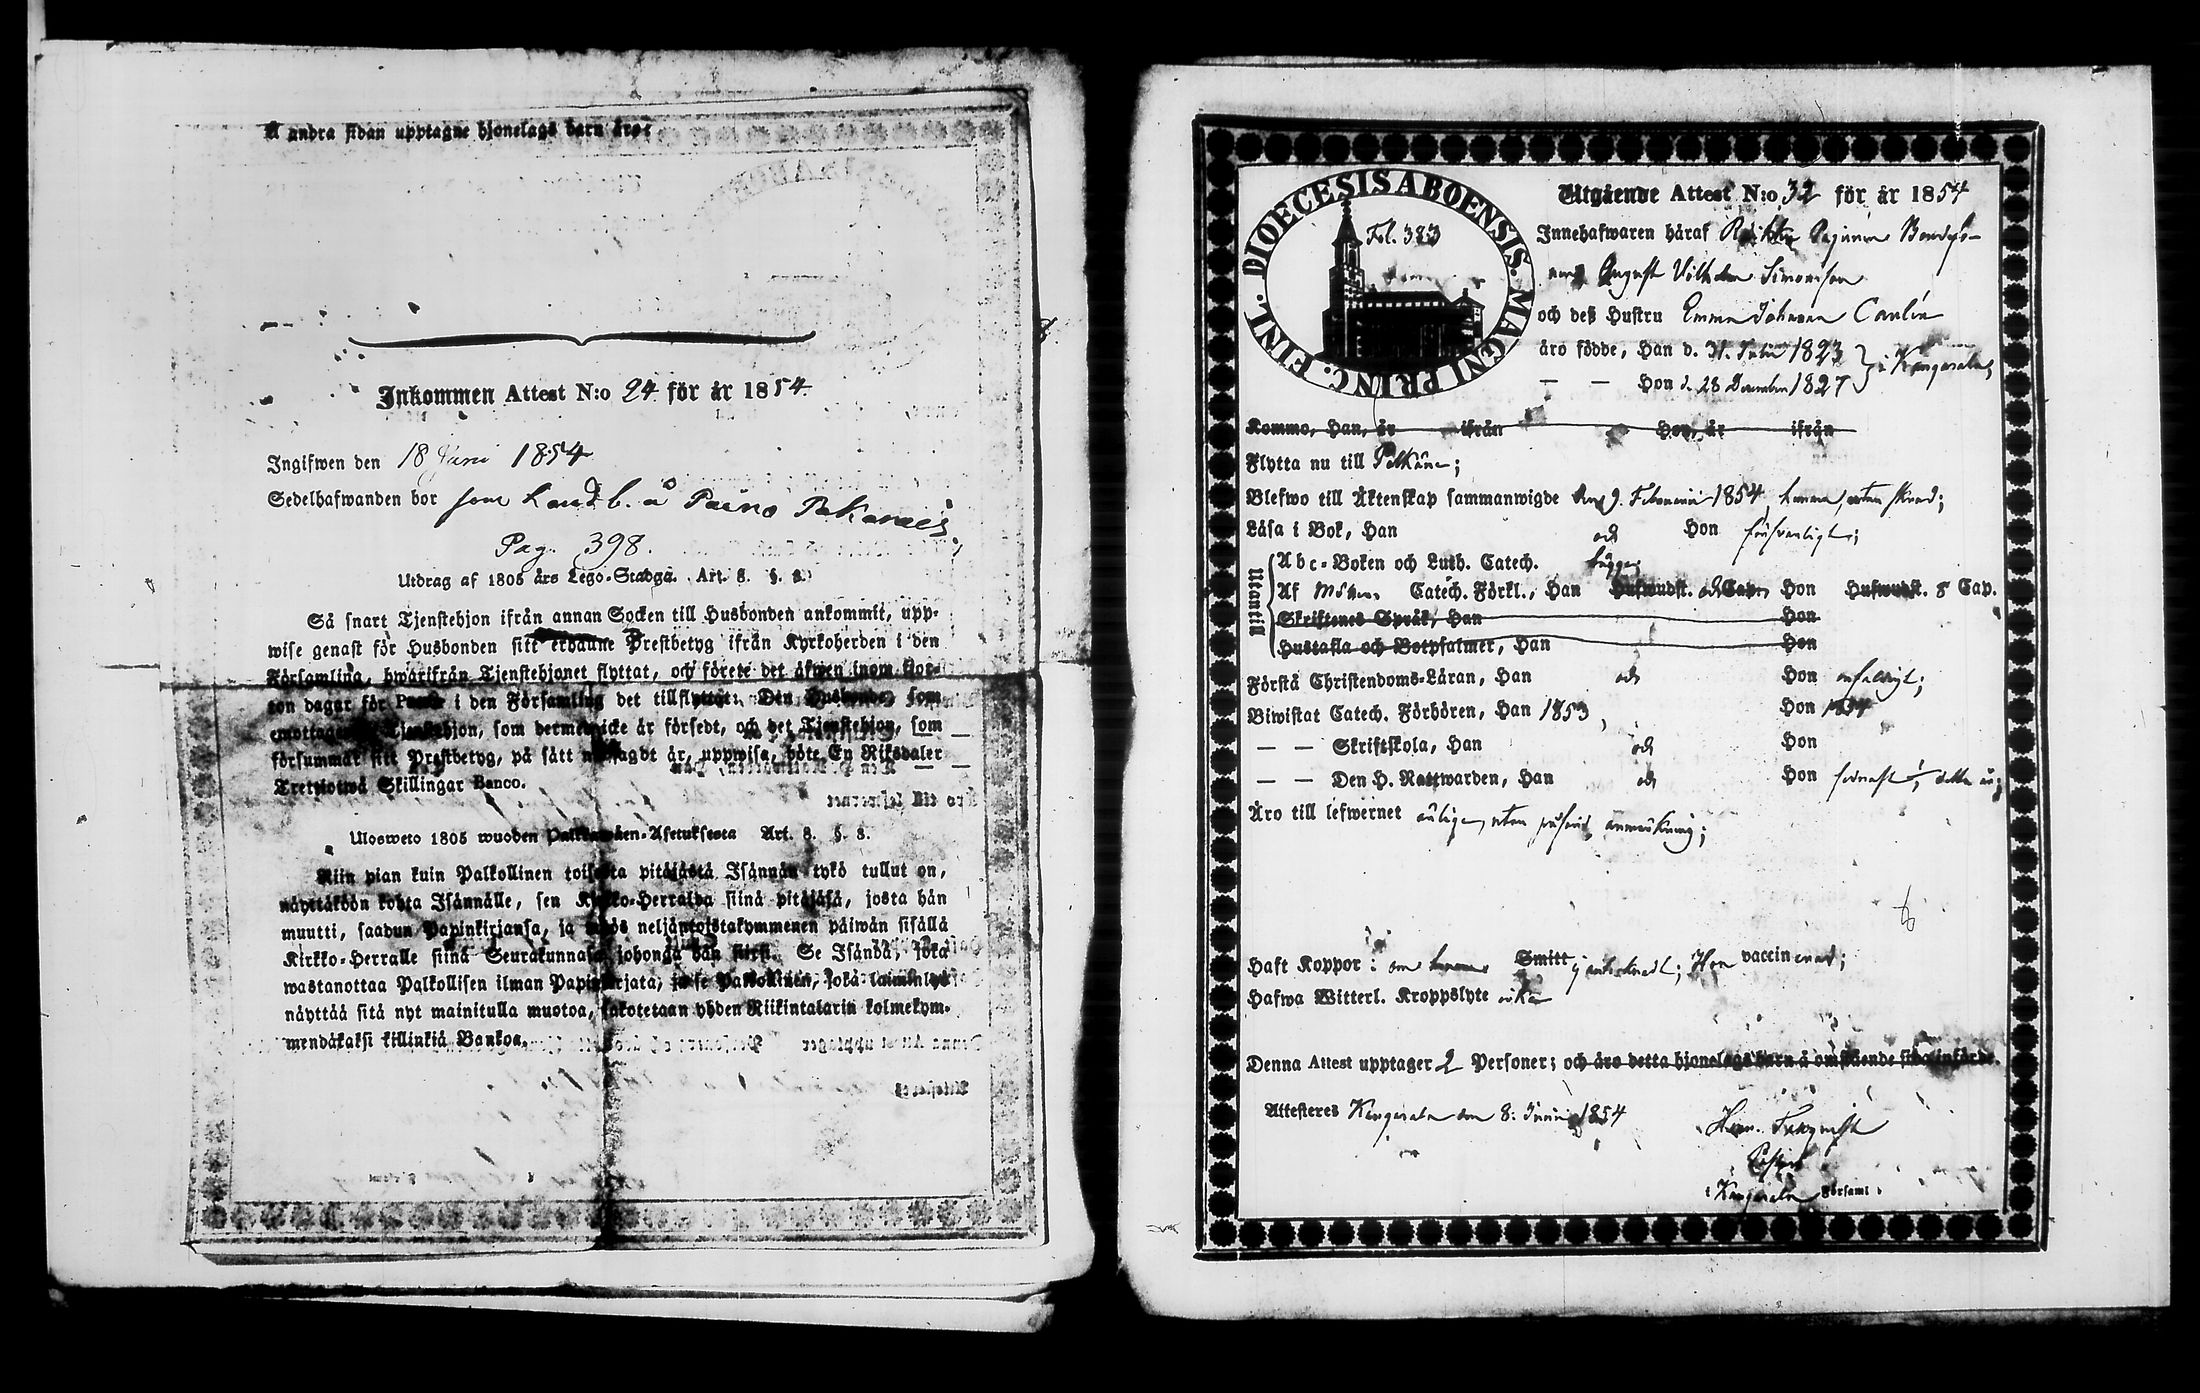 Å andra sidan upptagne hjonelags barn äro:
Inkommen Attest N:o 24 för år 1854.
Ingifwen den 18 Juni 1854
Sedelhafwanden bor som Landb. å Paino Pakarais
Pag. 398.
Utdrag af 1805 års Lego-Stadga. Art. 8. §. 8.
Så snart Tjenstehjon ifrån annan Socken till Husbonden ankommit, upp-
wise genast för Husbonden sitt erhållne Prestbetyg ifrån Kyrkoherden i den
Församling, hwarifrån Tjenstehjonet flyttat, och förete det äfwen inom fjor-
ton dagar för Pastor i den Församling det tillflyttat. Den Husbonde, som
emottager Tjenstehjon, som dermed icke är försedt, och det Tjenstehjon, som
försummar sitt Prestbetyg, på sätt nu sagdt är, uppwisa, böte En Riksdaler
Trettiotwå Skillingar Banco.
Ulosweto 1805 wuoden Palkkawäen-Asetuksesta Art. 8. §. 8.
Niin pian kuin Palkollinen toisesta pitäjästä Isännän tykö tullut on,
näyttäköön kohta Isännälle, sen Kirkko-Herralda siinä pitäjäsä, josta hän
muutti, saadun Papinkirjansa, ja myös neljäntoistakymmenen päiwän sisällä
Kirkko-Herralle siinä Seurakunnasa johonga hän siirsi. Se Isändä, joka
wastanottaa Palkollisen ilman Papinkirjata, ja se Palkollinen, joka laiminlyö
näyttää sitä nyt mainitulla muotoa, sakotetaan yhden Riikintalarin kolmekym-
mendäkaksi killinkiä Bankoa.
DIOECESIS ABOENSIS. MAGNI PRINC. FINL.
Fol. 383
Utgående Attest N:o 32 för år 1854
Innehafwaren häraf
August Vilhelm Simonsson
och deß Hustru Emma Johanna Caulin
äro födde, Han d. 31. Julii 1823 } i Kangasala,
— — Hon d. 28 December 1827
Kommo, Han, år ifrån Hon, år ifrån
Flytta nu till Pelkäne;
Blefwo till Äktenskap sammanwigde den 9. Februarii 1854,
Läsa i Bok, Han och Hon försvarligt;
Utantill
Abc-Boken och Luth. Catech. begge
Af Catech. Förkl., Han Hufwudst. och Cap. Hon Hufwudst. 8 Cap.
Skriftenes Språk, Han Hon
Hustafla och Botpsalmer, Han Hon
Förstå Christendoms-Läran, Han och Hon enfaldigt;
Biwistat Catech. Förhören, Han 1853, Hon 1854
— — Skriftskola, Han och Hon
— — Den H. Nattwarden, Han och Hon sednast i detta år;
Äro till lefwernet ärliga, utan anmärkning;
Haft Koppor: om Smitt Hon vaccinerad;
Hafwa Witterl. Kroppslyte
Denna Attest upptager 2 Personer; och äro detta hjonelags barn å omstående sida införde.
Attesteres Kangasala den 8. Junii 1854
Pastor
i Kangasala Församl.